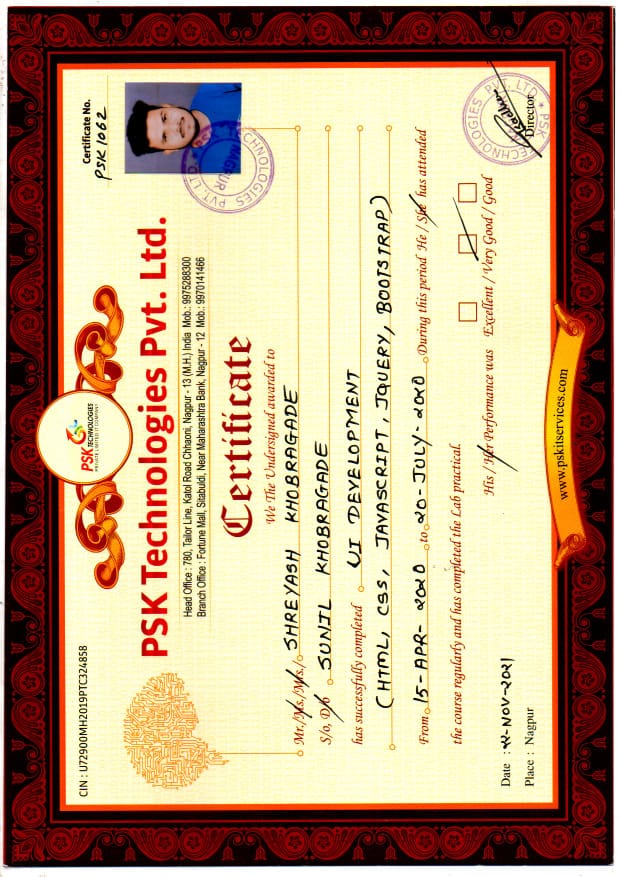 CIN : U72900MH2019PTC324858
PSK TECHNOLOGIES
PRIVATE LIMITED IT COMPANY
Certificate No.
PSK1062
PSK Technologies Pvt. Ltd.
Head Office : 780, Tailor Line, Katol Road Chhaoni, Nagpur - 13 (M.H.) India Mob.: 9975288300
Branch Office : Fortune Mall, Sitabuldi, Near Maharashtra Bank, Nagpur - 12 Mob.: 9970141466
TECHNOLOGIES PVT. LTD. * PSK
NAGPUR
Certificate
We The Undersigned awarded to
Mr./Ms./Mrs./ SHREYASH KHOBRAGADE
S/o, D/o SUNIL KHOBRAGADE
has successfully completed UI DEVELOPMENT
(HTML, CSS, JAVASCRIPT, JQUERY, BOOTSTRAP)
From 15-APR-2020 to 20-JULY-2020 During this period He / She has attended
the course regularly and has completed the Lab practical.
His / Her Performance was Excellent / Very Good / Good
Date : -NOV-2021
Place : Nagpur
TECHNOLOGIES PVT. LTD * PSK *
Director
www.pskitservices.com